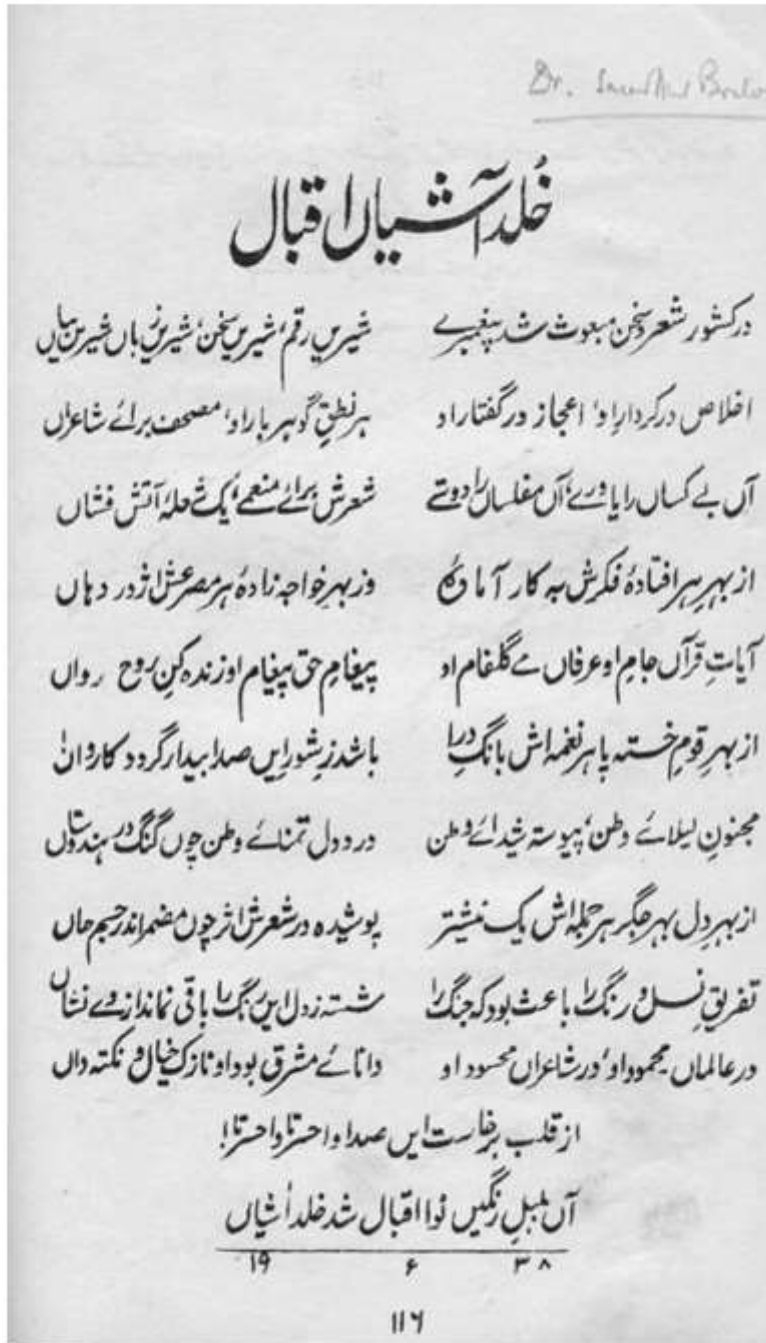 Dr.
خُلد آشیاں اقبال
در کشور شعر و سخن مبعوث شد پیغمبرے شیریں رقم، شیریں سخن، شیریں زباں شیریں بیاں
اخلاص در کردارِ او، اعجاز در گفتار او ہر نطقِ گوہر بار او، مصحف برائے شاعراں
آں بے کساں را یاورے، آں مفلساں را دوستے شعرش برائے منعمے، یک شعلۂ آتش فشاں
از بہرِ ہر افتادۂ فکرش بہ کار آمادۂ وز بہرِ خواجہ زادۂ ہر مصرعش اژدر دہاں
آیاتِ قرآں جامِ او عرفاں مے گلفام او پیغامِ حق پیغام او زندہ کنِ روح رواں
از بہرِ قومِ خستہ پا ہر نغمہ اش بانگِ درا باشد ز شور ایں صدا بیدار گردد کارواں
مجنونِ لیلائے وطن، پیوستہ شیدائے وطن در دل تمنائے وطن چوں گنگ در ہندوستاں
از بہرِ دل بہرِ جگر ہر جملہ اش یک نیشتر پوشیدہ در شعرش اثر چوں مضمر اندر جسم جاں
تفریقِ نسل و رنگ را باعث بود کہ جنگ را شستہ ز دل ایں رنگ را باقی نماند از وے نشاں
در عالماں محمود او، در شاعراں محسود او دانائے مشرق بود او نازک خیال و نکتہ داں
از قلب برخاست ایں صدا واحسرتا واحسرتا!
آں بلبلِ رنگیں نوا اقبال شد خلد آشیاں
۱۹ ۳۸ ء
۱۱۶